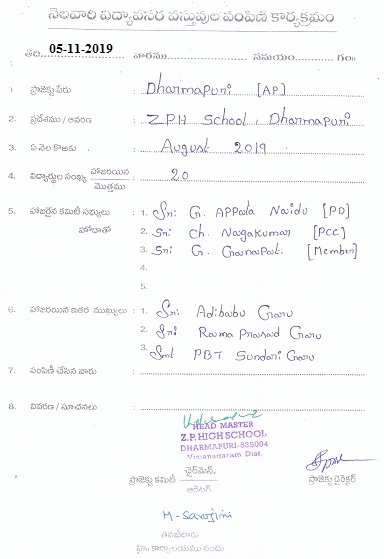 నెలవారి విద్యావసర వస్తువుల పంపిణి కార్యక్రమం
తేది 05-11-2019 వారము సమయం. గం॥
1 ప్రాజెక్టు పేరు : Dharmapuri [AP]
2. ప్రదేశము / ఆవరణ : Z.P.H School, Dharmapuri
3. ఏ నెల కొరకు : August 2019
4. విద్యార్థుల సంఖ్య హాజరయిన / మొత్తము : 20
5. హాజరైన కమిటీ సభ్యులు : 1. Sri: G. APPala Naidu [PD]
హోదాతో 2. Sri: Ch. Nagakumar [PCC]
3. Sri: G. Ganapati. [Member]
4.
5.
6. హాజరయిన ఇతర ముఖ్యులు : 1. Sri: Adibabu Garu
2. Sri: Rama Prasad Garu
3. Smt PBT Sundari Garu
7. పంపిణి చేసిన వారు :
8. వివరణ / సూచనలు :
HEAD MASTER
Z.P. HIGH SCHOOL
DHARMAPURI-535004
Vizianagaram Dist.
ప్రాజెక్టు కమిటీ ఛైర్‌మేన్. ప్రాజెక్టు డైరెక్టర్
M. Sarojini
తనఖీదారు
హై॥ కార్యాలయము నందు